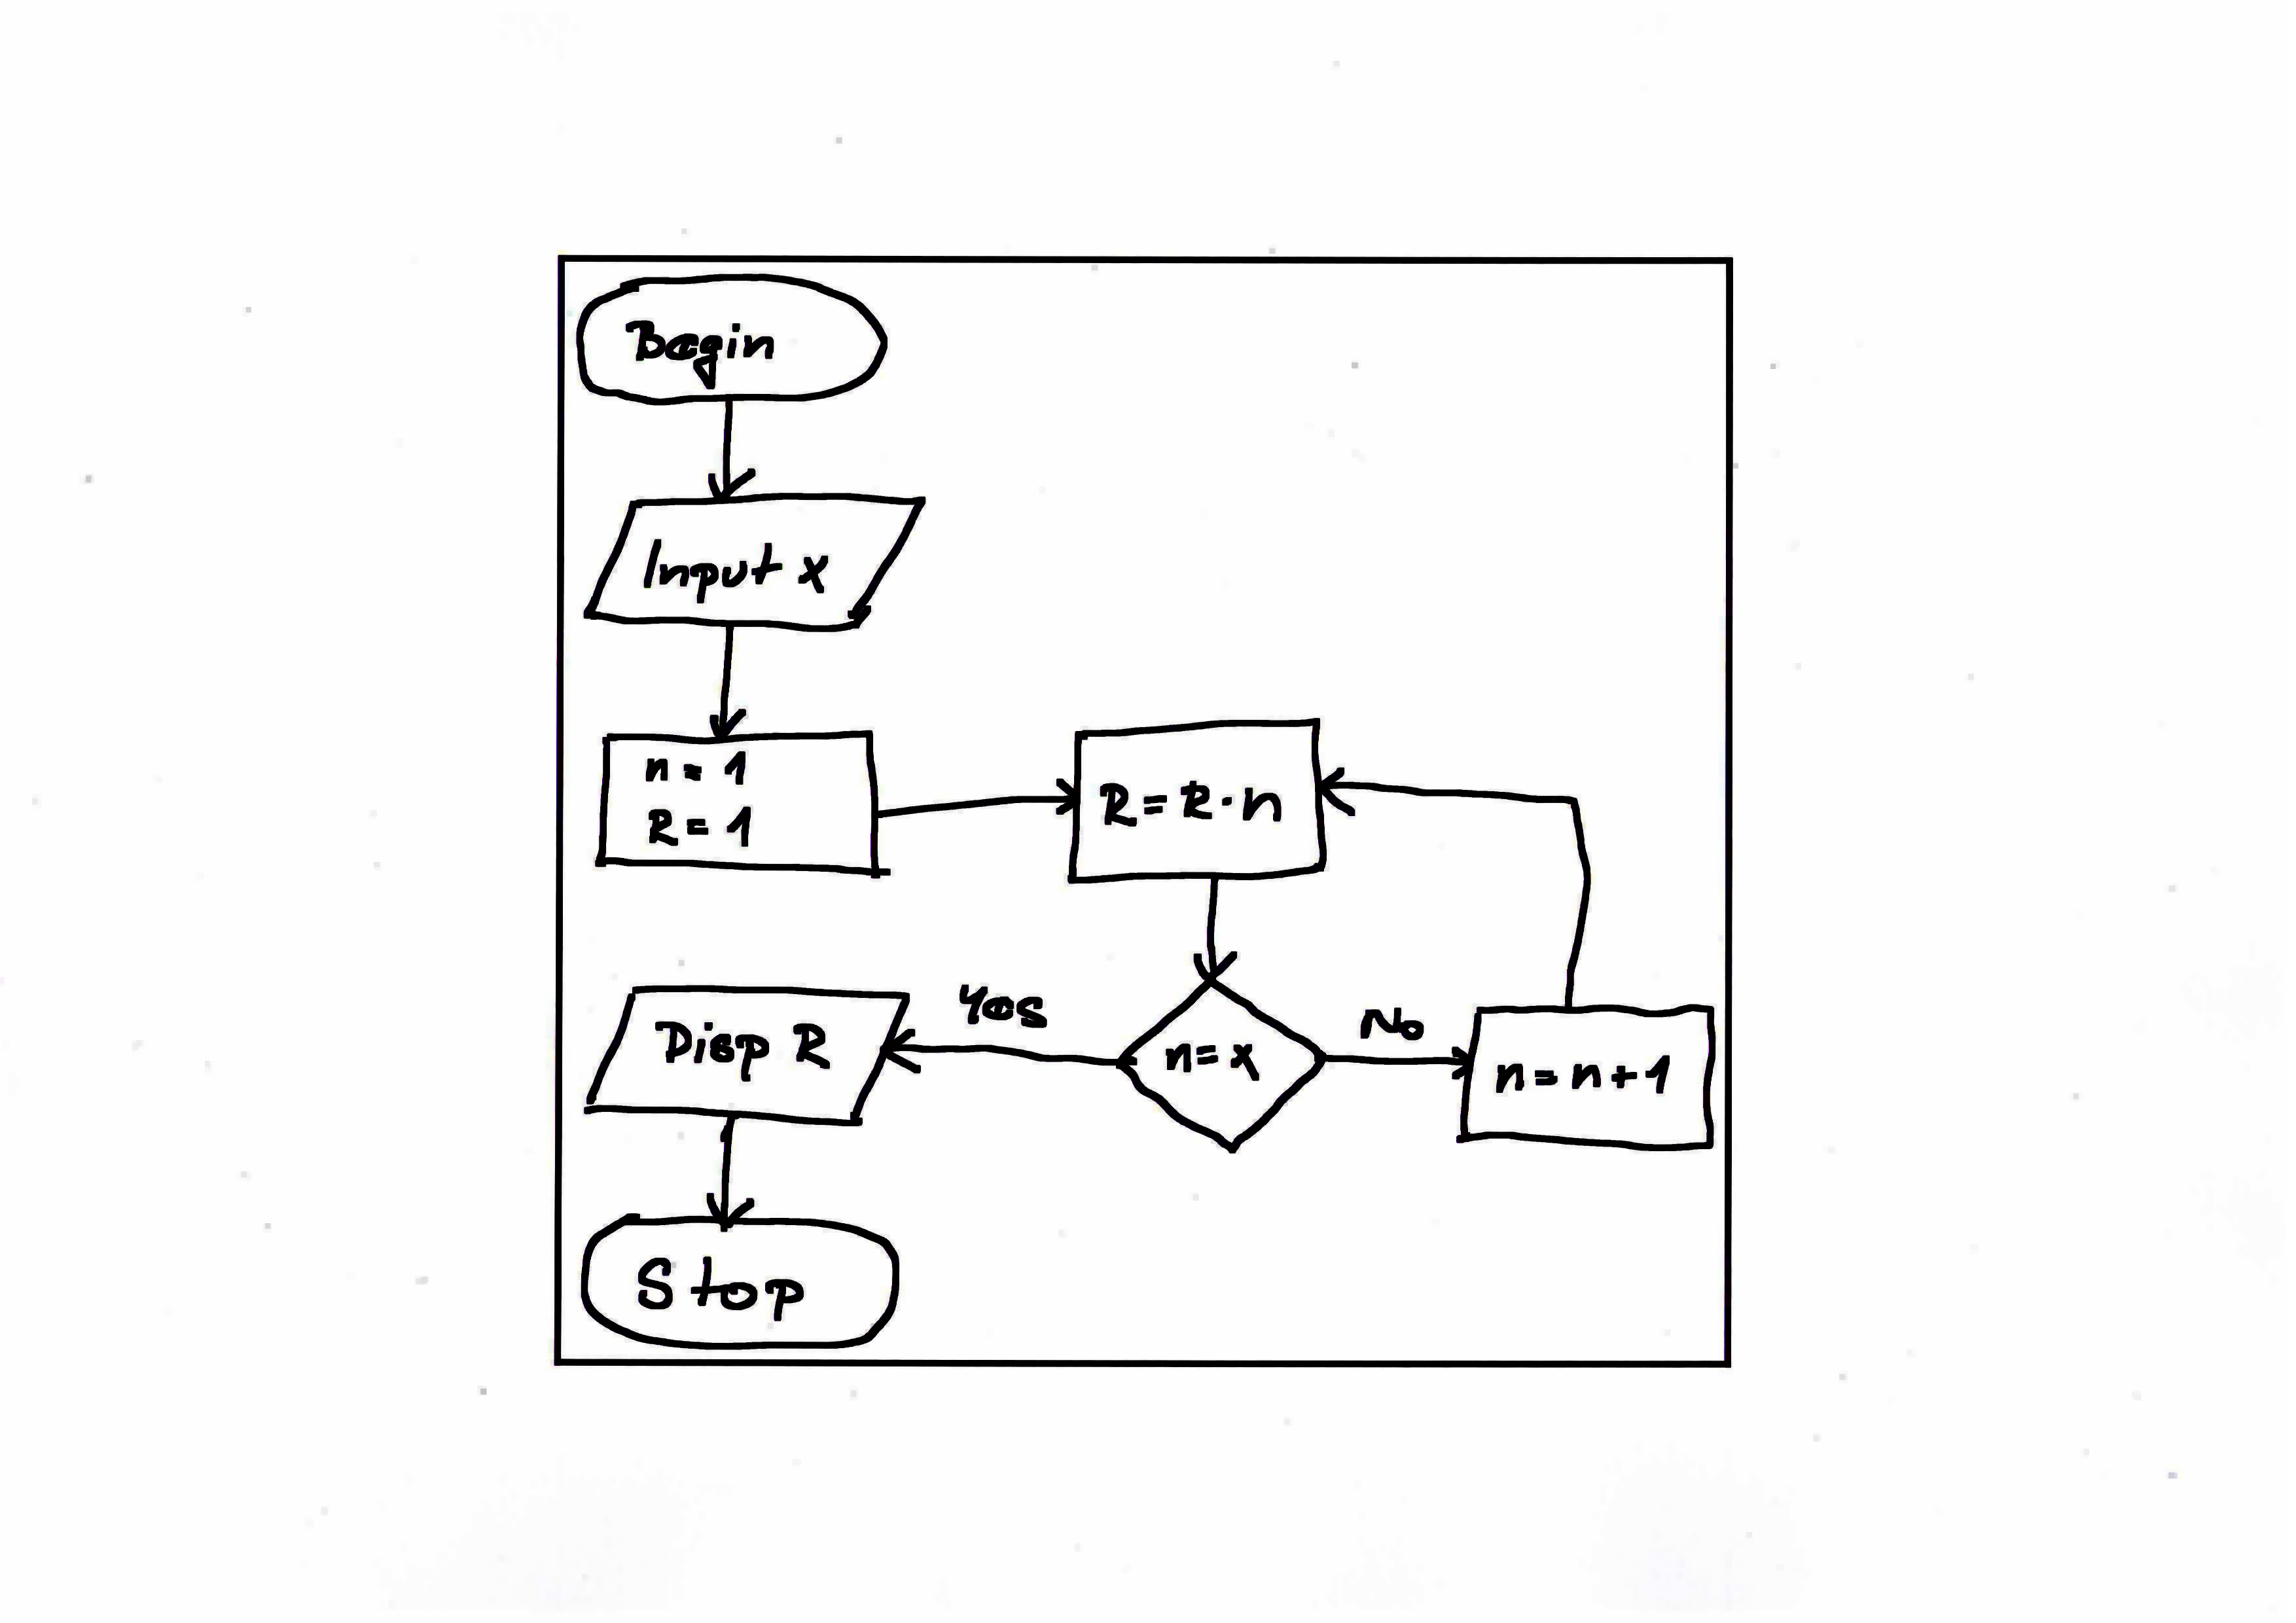 Begin
Input x
n = 1
R = 1
R = R · n
n = x
Yes
No
Disp R
n = n + 1
Stop